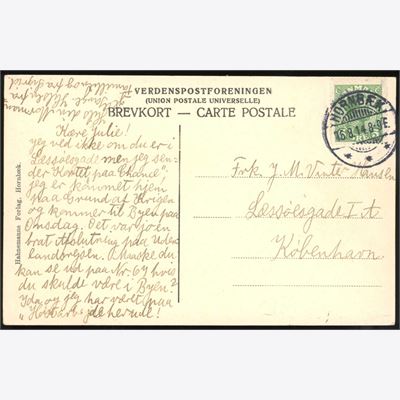 VERDENSPOSTFORENINGEN
(UNION POSTALE UNIVERSELLE)
BREVKORT — CARTE POSTALE
HORNBÆK
16.8.14.8-9E.
DANMARK
Kære Julie!
jeg ved ikke om du er i
Læssøesgade men jeg sen-
der Kortet "paa Chance",
jeg er kommet hjem
paa Grund af Krigen
og kommer til Byen paa
Onsdag. Det var jo en
brat Afslutning paa Uden-
landsrejsen. Maaske du
kan se ud paa Nr. 67 hvis
du skulde være i Byen?
Ida og jeg har været paa
"Høstarb." derude!
Frk J. M. Vinter Hansen
Læssøesgade 1 A
København
Hahnemanns Forlag, Hornbæk.